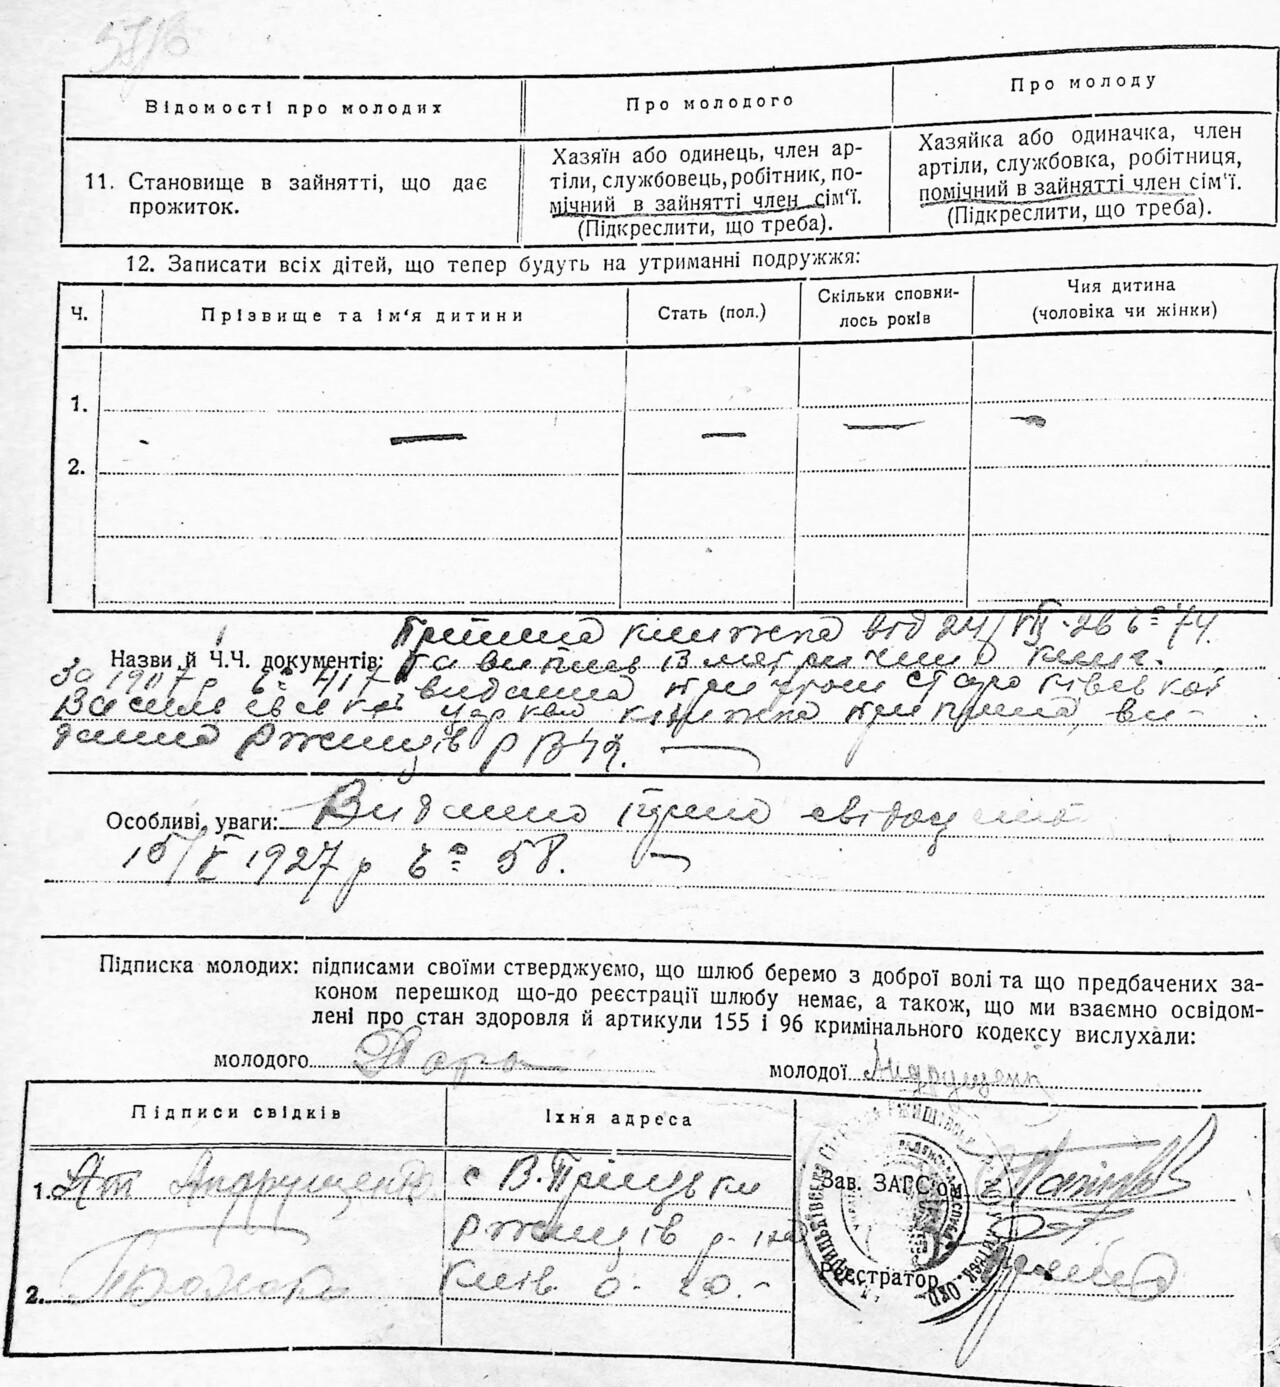 Відомості про молодих
Про молодого
Про молоду
11. Становище в зайнятті, що дає
прожиток.
Хазяїн або одинець, член ар-
тіли, службовець, робітник, по-
мічний в зайнятті член сім'ї.
(Підкреслити, що треба).
Хазяйка або одиначка, член
артіли, службовка, робітниця,
помічний в зайнятті член сім'ї.
(Підкреслити, що треба).
12. Записати всіх дітей, що тепер будуть на утриманні подружжя:
Ч.
Прізвище та ім'я дитини
Стать (пол.)
Скільки сповни-
лось років
Чия дитина
(чоловіка чи жінки)
1.
2.
книжка від 24/VII-26 74.
Назви й Ч.Ч. документів: та випис із метричних книг
за 1907 р 417, видана при
церкви книжка видана
Ржищів РВК.
Особливі уваги: Видано
15/V 1927 р 58.
Підписка молодих: підписами своїми стверджуємо, що шлюб беремо з доброї волі та що предбачених за-
коном перешкод що-до реєстрації шлюбу немає, а також, що ми взаємно освідом-
лені про стан здоровля й артикули 155 і 96 кримінального кодексу вислухали:
молодого
молодої Андрущенк
Підписи свідків
Їхня адреса
1. Андрущенко
с В. Пріцьки
Ржищів р-на
2.
Київ о-
Зав. ЗАГС'ом
Реєстратор